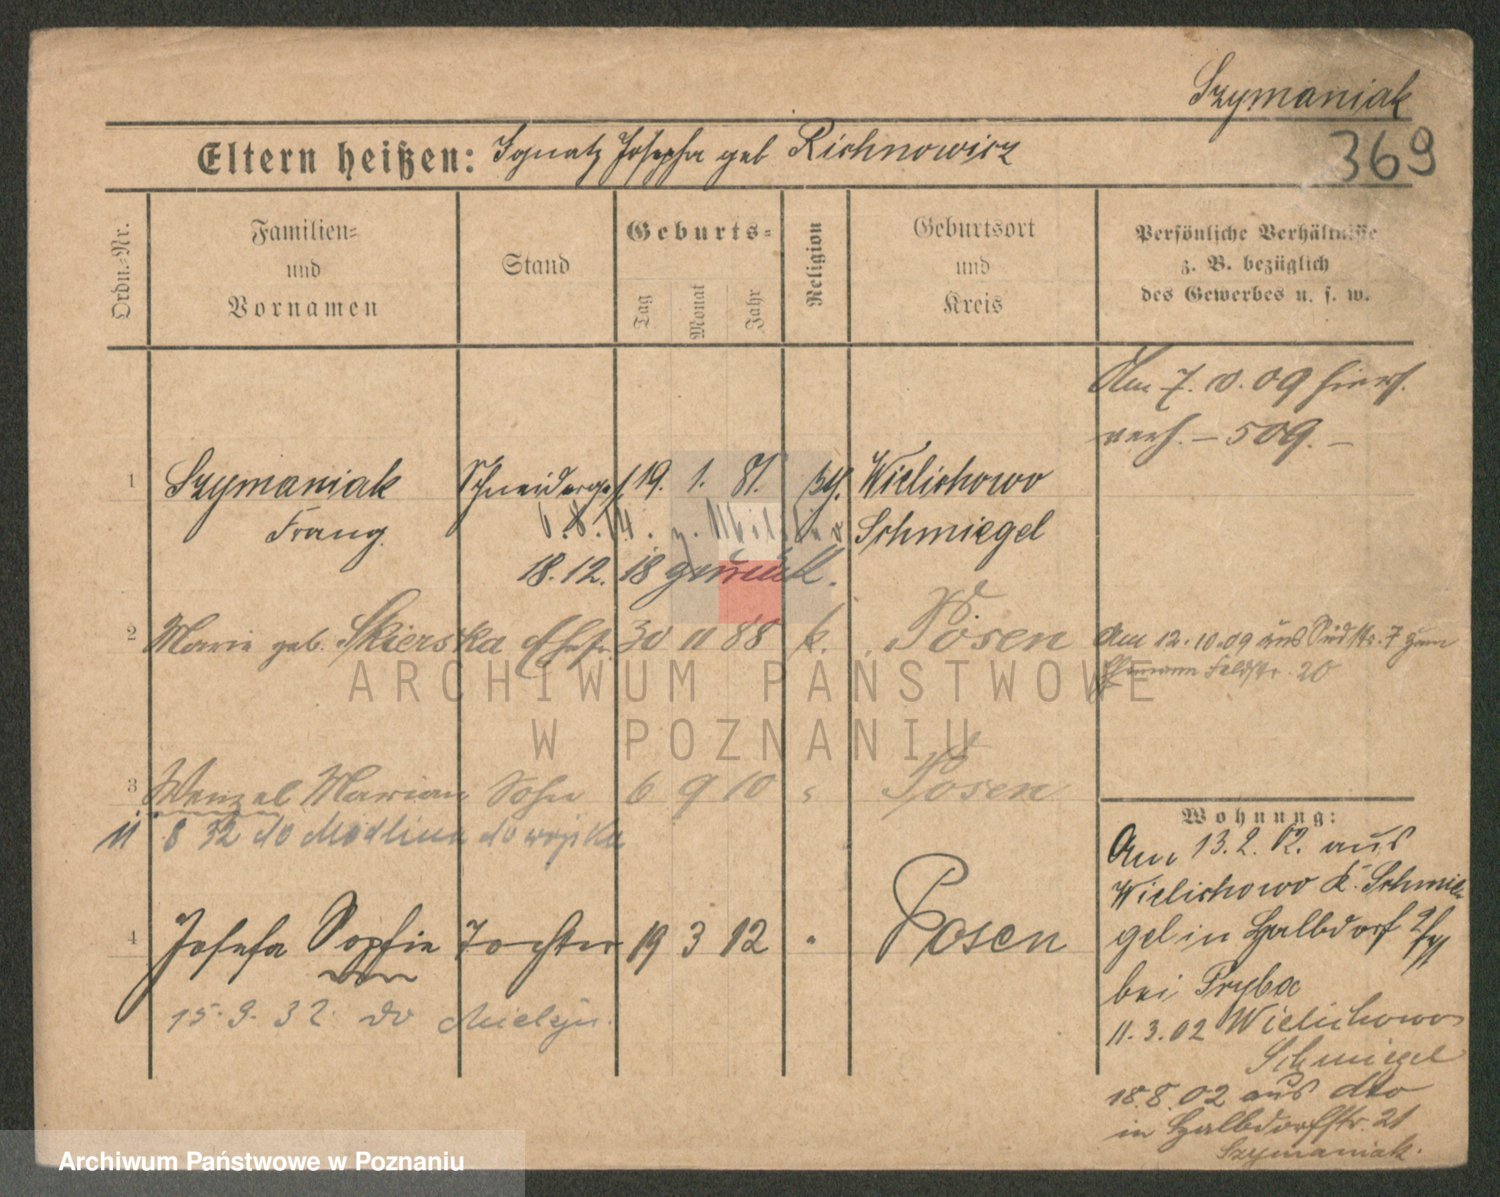 Szymaniak
369
Eltern heißen: Ignatz Josepha geb Richnowicz
Ordn.=Nr.
Familien=
und
Vornamen
Stand
Geburts=
Tag
Monat
Jahr
Religion
Geburtsort
und
Kreis
Persönliche Verhältnisse
z. B. bezüglich
des Gewerbes u. s. w.
Am 7. 10. 09 hiers.
verh. – 509. –
1 Szymaniak Schneiderges. 19. 1. 81. Wielichowo
Franz 6. 8. 14. z. Militär Schmiegel
18. 12. 18 zurück.
2 Marie geb. Skierska Ehefr. 30 11 88 k. Posen Am 12. 10. 09 aus Südstr. 7 zum
Ehemann Feldstr. 20
3 Wenzel Marian Sohn 6 9 10 " Posen
11 8 32 do Modlina do wojska
4 Josefa Sophie Tochter 19 3 12 " Posen
15. 9. 32. do
Wohnung:
Am 13. 2. 02. aus
Wielichowo K. Schmie-
gel in Halbdorf
bei Pryba
11. 3. 02 Wielichowo
Schmiegel
18. 8. 02 aus dto
in Halbdorfstr. 21
Szymaniak.
ARCHIWUM PAŃSTWOWE
W POZNANIU
Archiwum Państwowe w Poznaniu